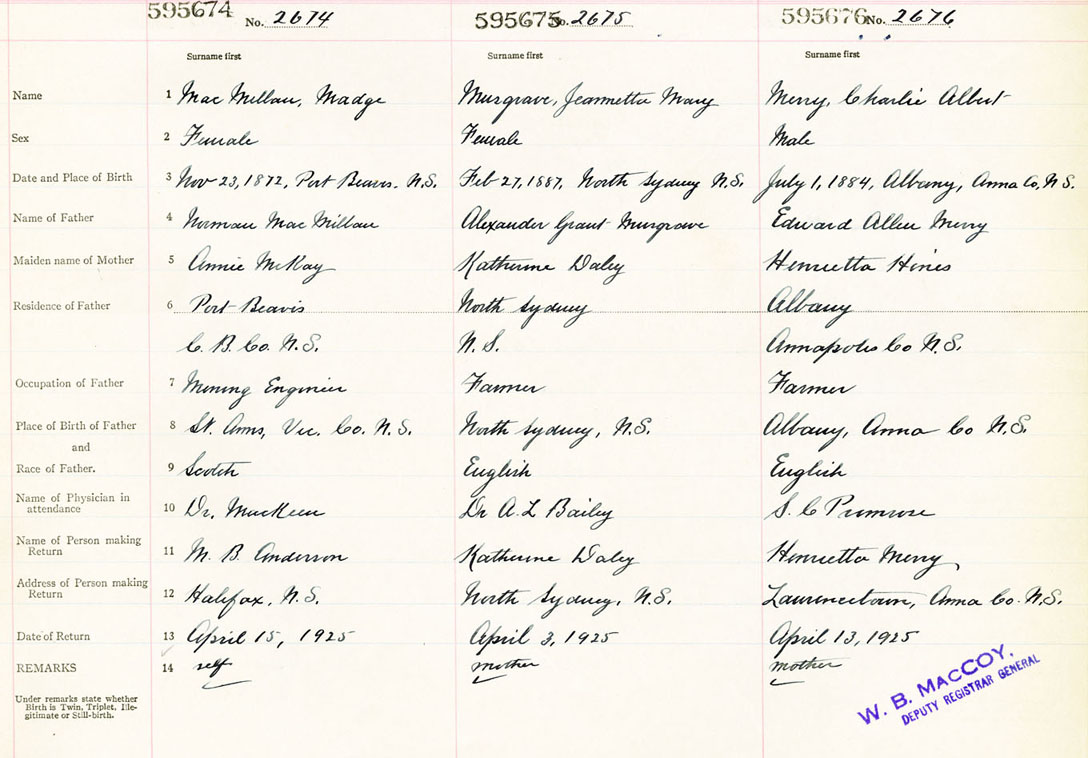 595674 No. 2674 595675 No. 2675 595676 No. 2676
Surname first Surname first Surname first
Name 1 Mac Millan, Madge Musgrave, Jeannetta Mary Merry, Charlie Albert
Sex 2 Female Female Male
Date and Place of Birth 3 Nov 23, 1872, Port Beavis. N.S. Feb 27, 1887, North Sydney N.S. July 1, 1884, Albany, Anna Co, N.S.
Name of Father 4 Norman Mac Millan Alexander Grant Musgrave Edward Allen Merry
Maiden name of Mother 5 Annie McKay Katherine Daley Henrietta Hines
Residence of Father 6 Port Beavis North Sydney Albany
C. B. Co. N.S. N. S. Annapolis Co N.S.
Occupation of Father 7 Mining Engineer Farmer Farmer
Place of Birth of Father 8 St. Anns, Vic. Co. N.S. North Sydney, N.S. Albany, Anna Co N.S.
and
Race of Father. 9 Scotch English English
Name of Physician in
attendance 10 Dr. MacKeen Dr A. L Bailey S. C Primrose
Name of Person making
Return 11 M. B. Anderson Katherine Daley Henrietta Merry
Address of Person making
Return 12 Halifax, N.S. North Sydney, N.S. Lawrencetown, Anna Co. N.S.
Date of Return 13 April 15, 1925 April 3, 1925 April 13, 1925
REMARKS 14 self mother mother
Under remarks state whether
Birth is Twin, Triplet, Ille-
gitimate or Still-birth.
W. B. MACCOY,
DEPUTY REGISTRAR GENERAL